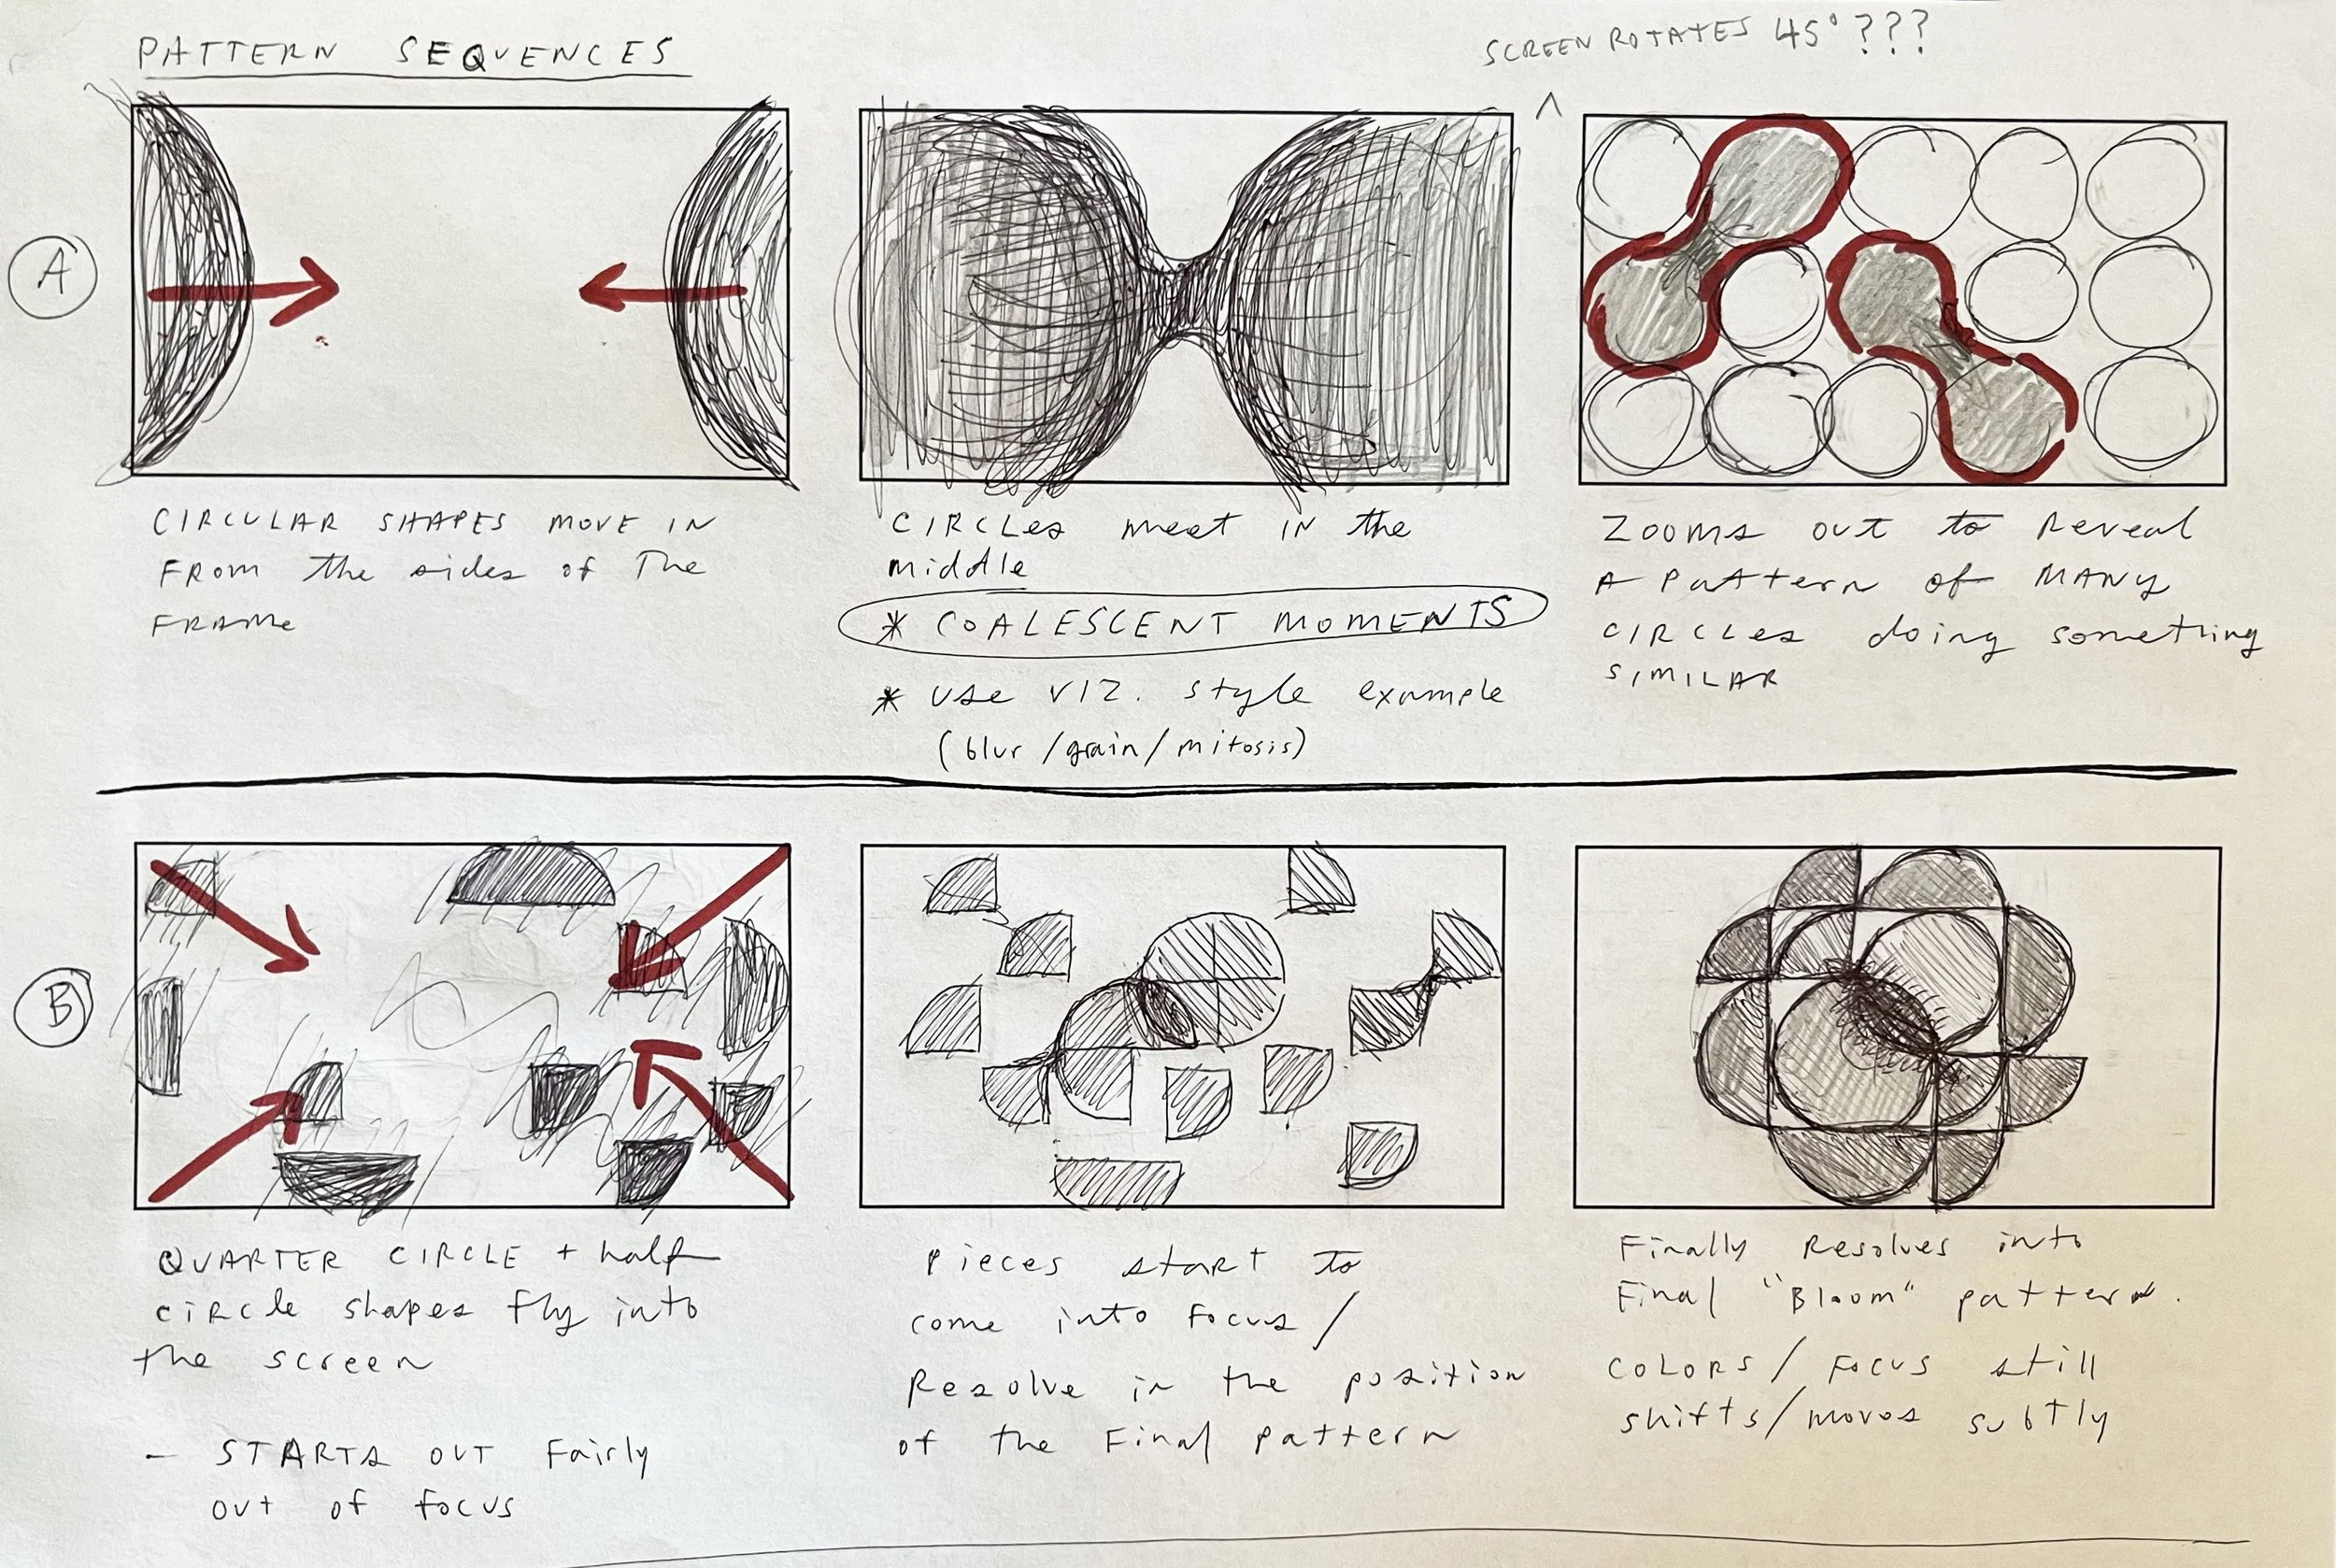 PATTERN SEQUENCES
SCREEN ROTATES 45° ???
A
CIRCULAR SHAPES MOVE IN
FROM the sides of The
FRAME
CIRCLES meet IN the
middle
* COALESCENT MOMENTS
* USE VIZ. style example
(blur/grain/mitosis)
ZOOMS out to Reveal
A Pattern of MANY
CIRCLES doing something
SIMILAR
B
QUARTER CIRCLE + half
CIRCLE shapes fly into
the screen
- STARTS OUT Fairly
out of focus
Pieces start to
come into focus/
Resolve in the position
of the Final pattern
Finally Resolves into
Final "Bloom" pattern.
COLORS/FOCUS still
shifts/moves subtly